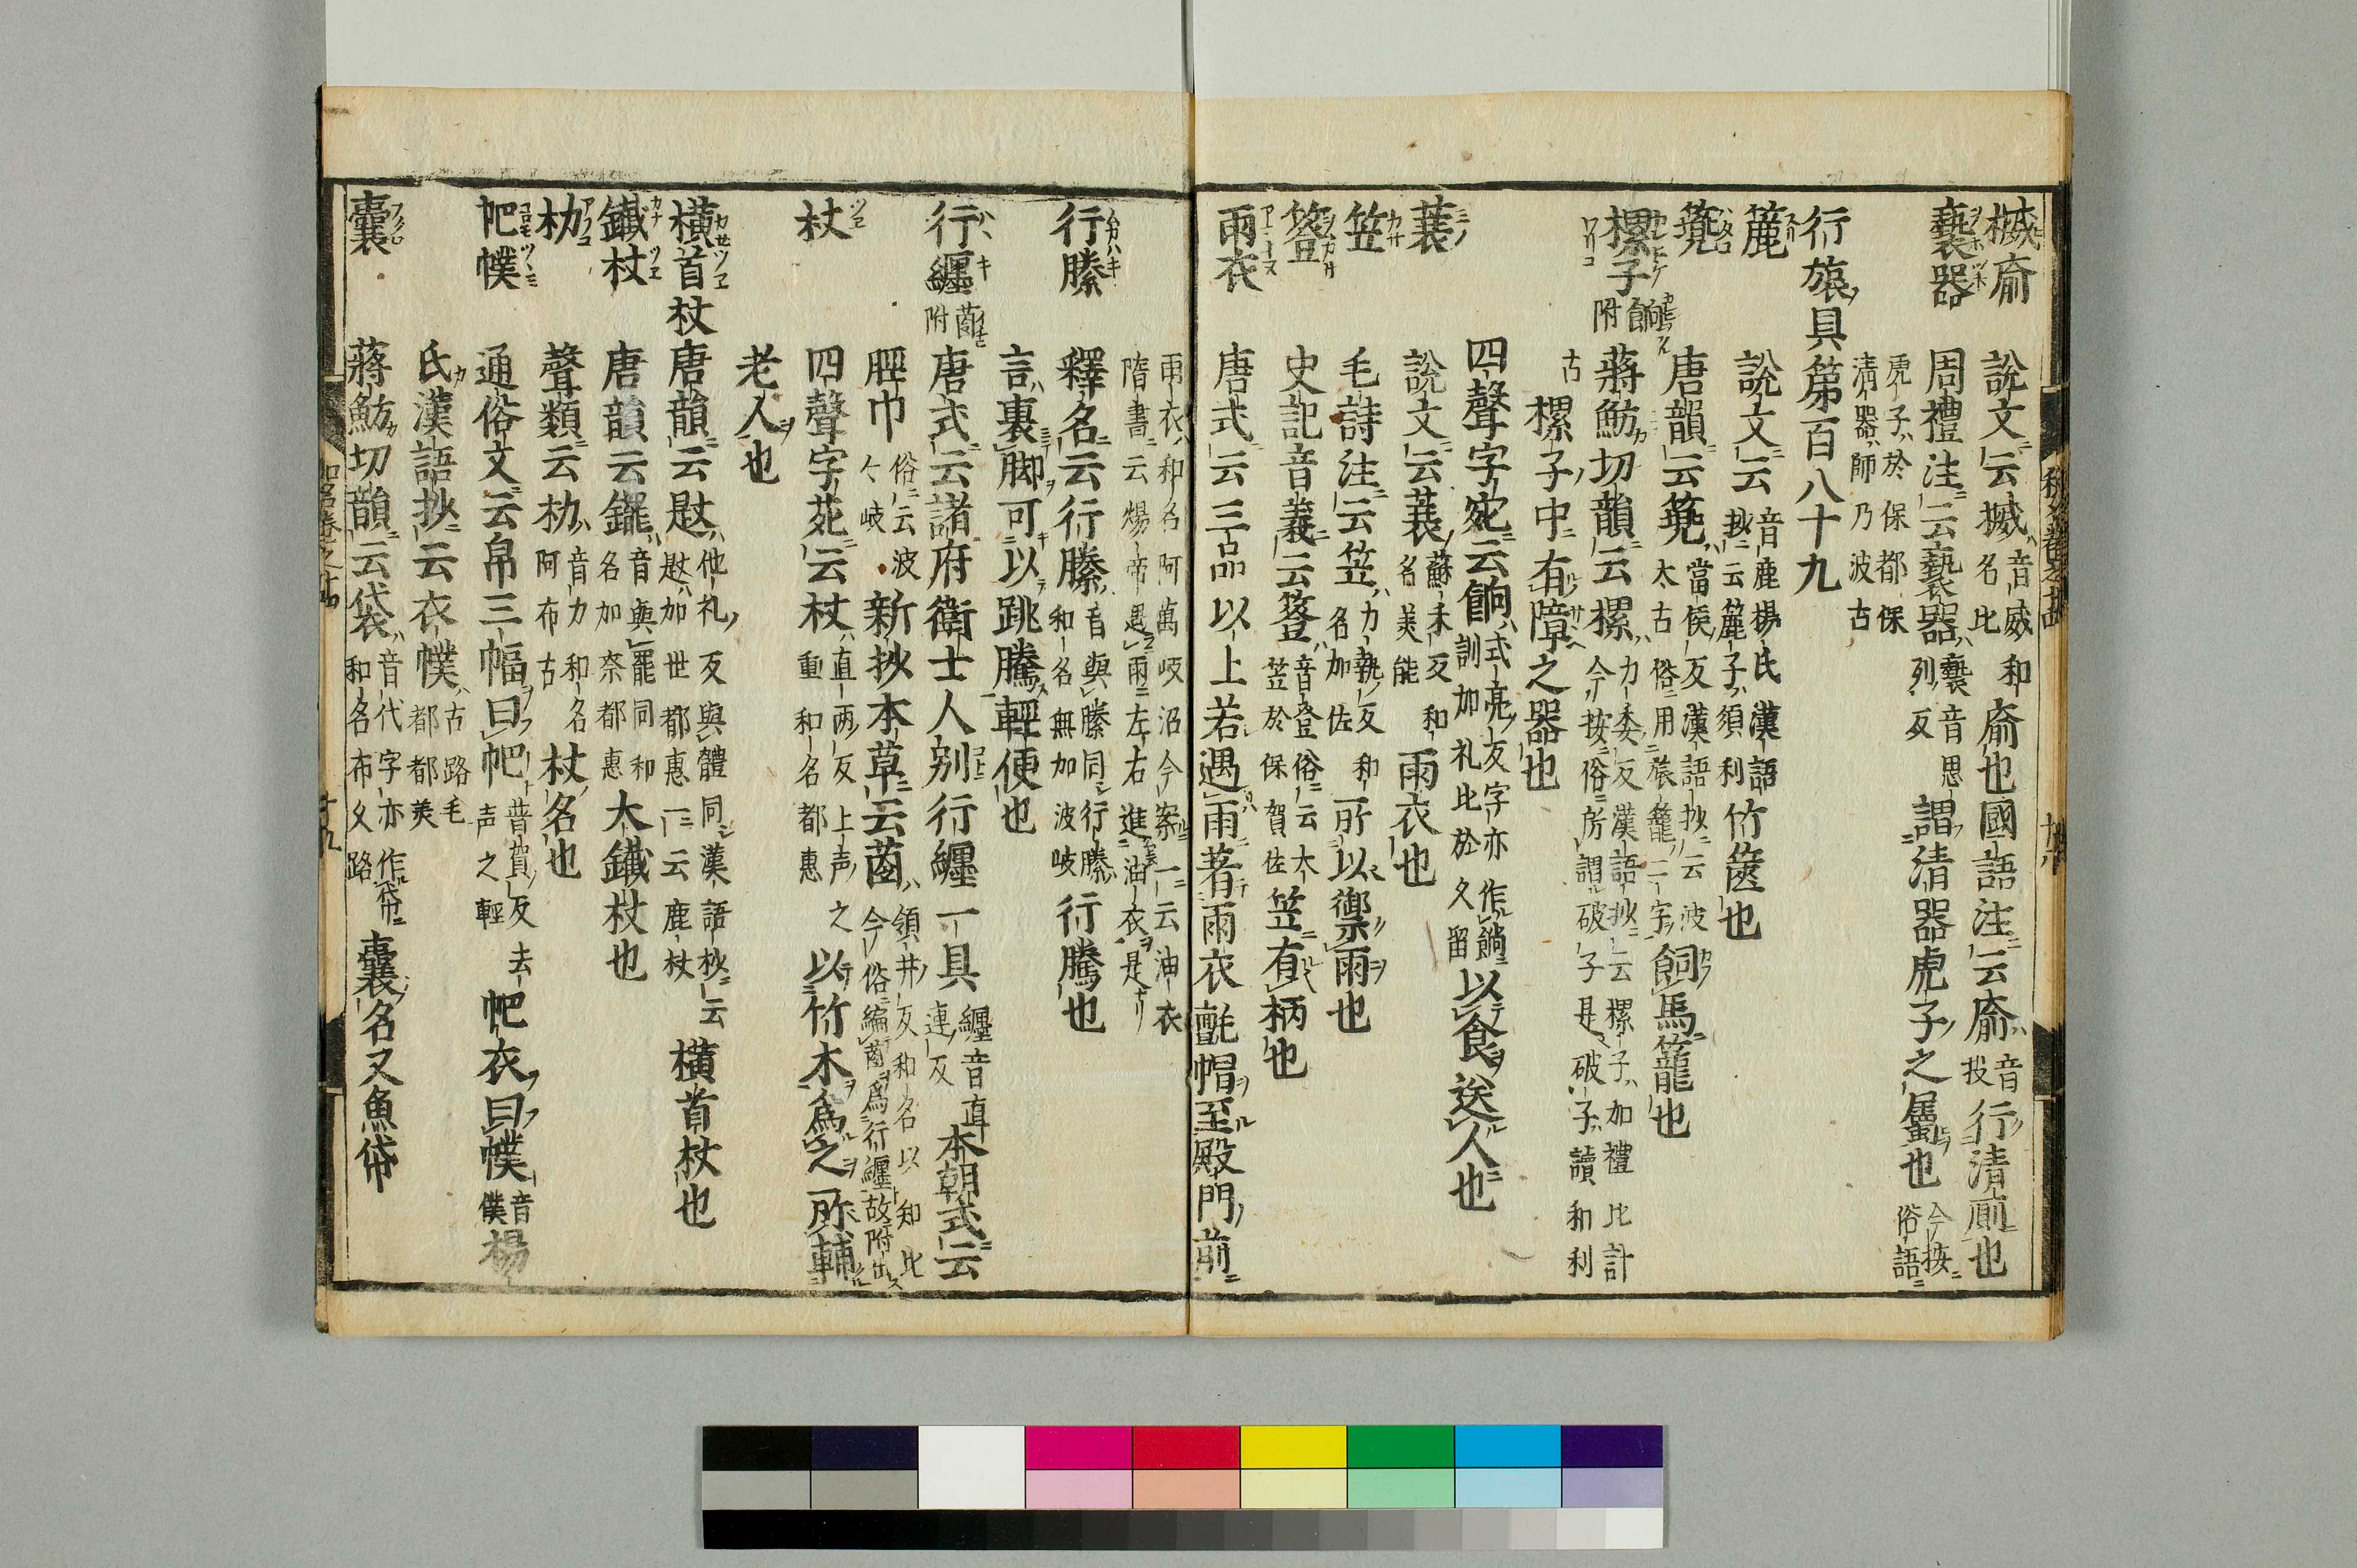 楲㢏 説文云楲音威和名比㢏也國語注云㢏音投行清廁也
褻器 周禮注云褻器褻音思列反謂清器虎子之屬也今按俗語
虎子於保都保清器師乃波古
行旅具第百八十九
簏 説文云音鹿楊氏漢語抄云簏子須利竹篋也
篼 唐韻云篼當侯反漢語抄云波太古俗用旅籠二字飼馬籠也
樏子餉附 蔣魴切韻云樏力委反漢語抄云樏子加禮比計今按俗所謂破子是破子讀和利
古樏子中有障之器也
四聲字苑云餉式亮反字亦作餉訓加礼比於久留以食送人也
蓑 説文云蓑蘇禾反和名美能雨衣也
笠 毛詩注云笠力執反和名加佐所以禦雨也
簦 史記音義云簦音登俗云大笠於保賀佐笠有柄也
雨衣 唐式云三品以上若遇雨著雨衣氈帽至殿門前
雨衣和名阿萬岐沼今案一云油衣隋書云煬帝遇雨左右進油衣是
行縢 釋名云行縢音與縢同行縢和名無加波岐行騰也
言裹脚可以跳騰輕便也
行纏䓙附 唐式云諸府衛士人別行纏一具纏音直連反本朝式云
脛巾俗云波々岐新抄本草云䓙領井反和名以知比今俗編䓙爲行纏故附出
杖 四聲字苑云杖直兩反上声之重和名都惠以竹木爲之所輔
老人也
橫首杖 唐韻云𣥺他礼反與體同漢語抄云𣥺加世都惠一云鹿杖橫首杖也
鐵杖 唐韻云鑃音與罷同和名加奈都惠大鐵杖也
朸 聲類云朸音力和名阿布古杖名也
帊幞 通俗文云帛三幅曰帊普賀反去声之輕帊衣曰幞音僕楊
氏漢語抄云衣幞古路毛都都美
囊 蔣魴切韻云袋音代字亦作帒和名布久路囊名又魚帒